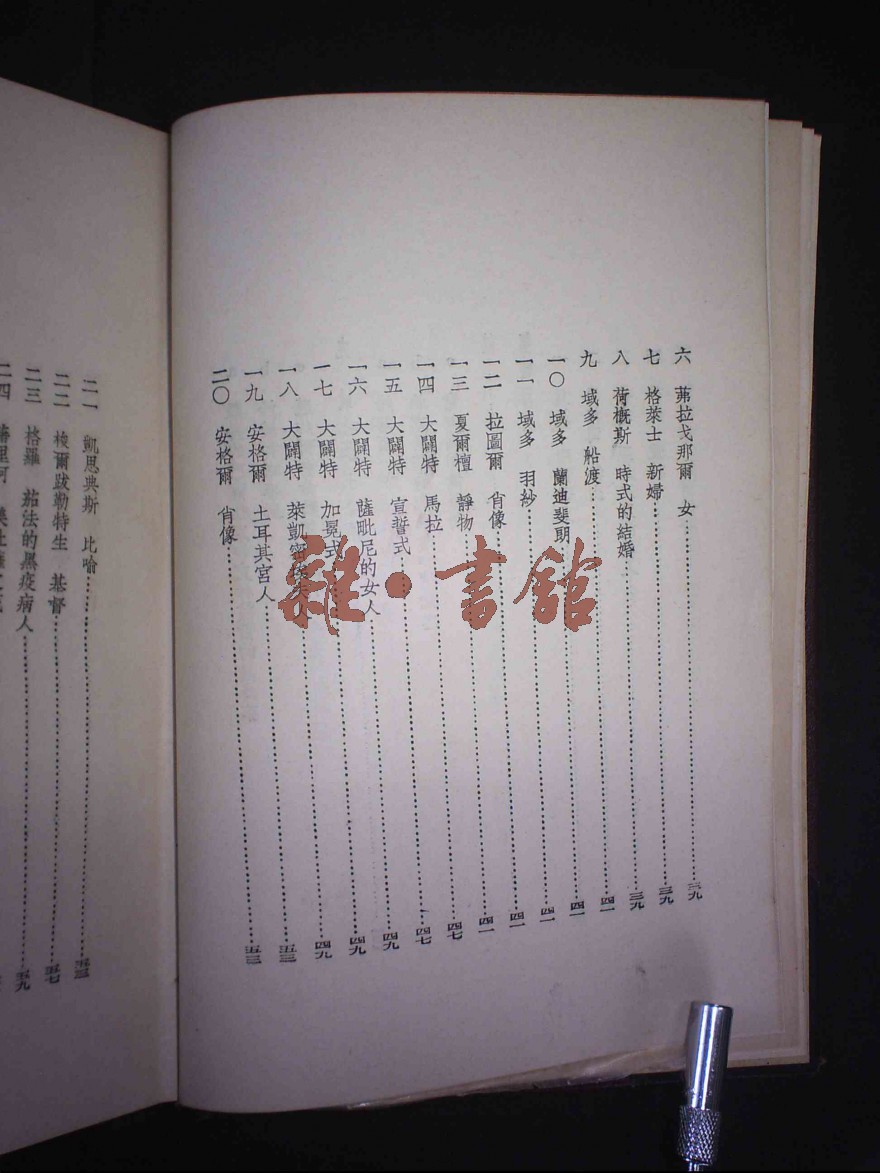 六 茀拉戈那爾 女 三九
七 格萊士 新婦 三九
八 荷概斯 時式的結婚 三九
九 域多 船渡 四一
一〇 域多 蘭迪斐朗 四一
一一 域多 羽紗 四一
一二 拉圖爾 肖像 四一
一三 夏爾檀 靜物 四一
一四 大闢特 馬拉 四七
一五 大闢特 宣誓式 四七
一六 大闢特 薩毗尼的女人 四九
一七 大闢特 加冕式 四九
一八 大闢特 萊凱密
一九 安格爾 土耳其宮人 五三
二〇 安格爾 肖像 五三
二一 凱思典斯 比喻 五三
二二 梭爾跋勒特生 基督 五七
二三 格羅 茄法的黑疫病人 五九
二四
雜·書館